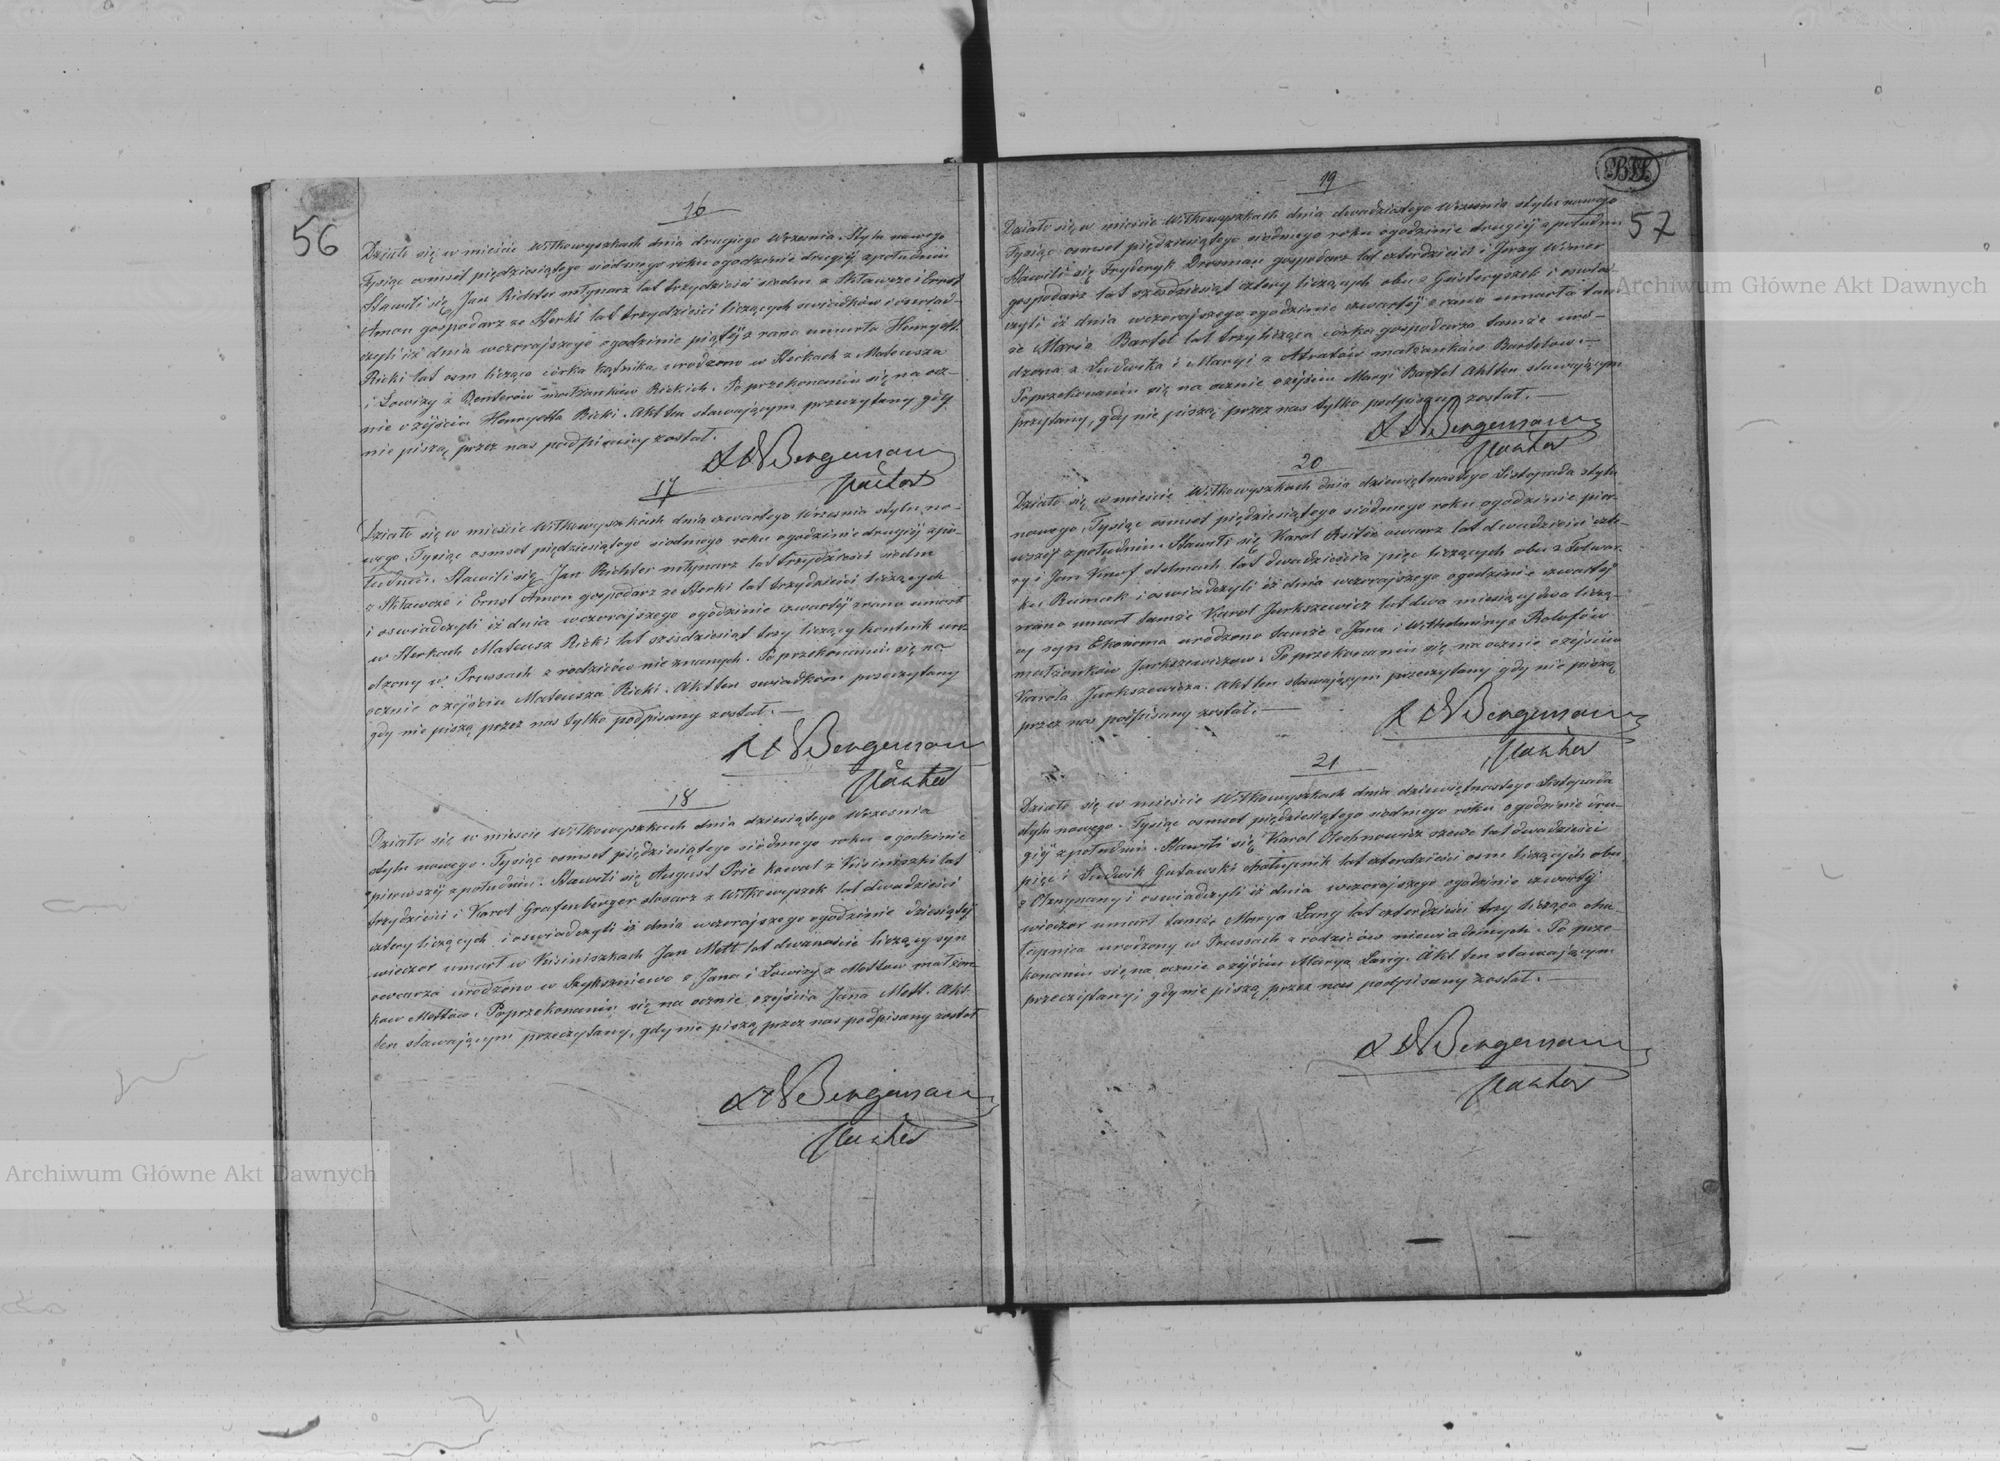 56
16
Działo się w mieście Wiłkowyszkach dnia drugiego Września Stylu nowego
Tysiąc osmset piędziesiątego siódmego roku o godzinie drugiéj z południa
Stawili się, Jan Richter młynarz lat trzydzieści siedm z Skławsze i Ernst
Amon gospodarz ze Sterki lat trzydzieści liczących świadków i oswiad-
czyli iż dnia wczorajszego o godzinie piątéj z rana umarła Henryett.
Ricki lat osm licząca córka kątnika, urodzona w Sterkach z Mateusza
i Lowizy z Renterów małżonków Rickich. Po przekonaniu się na ocz-
nie o zéjściu Henryetta Ricki. Akt ten stawającym przeczytany, gdy
nie piszą, przez nas podpisany został.
Bergemann
Pastor
17
Działo się w mieście Wiłkowyszkach dnia czwartego Września stylu no-
wego, Tysiąc osmset piędziesiątego siodmego roku o godzinie drugiéj z po-
łudnia. Stawili się, Jan Richter młynarz lat trzydzieści siedm
z Skławsze i Ernst Amon gospodarz ze Sterki lat trzydzieści liczących
i oswiadczyli iż dnia wczorajszego o godzinie czwartéj z rana umarł
w Sterkach Mateusz Ricki lat sześdziesiąt trzy liczący uro-
dzony w Prussach z rodziców nie znanych. Po przekonaniu się na
ocznie o zéjściu Mateusza Ricki. Akt ten świadkom przeczytany
gdy nie piszą przez nas tylko podpisany został.
Bergemann
Pastor
18
Działo się w mieście Wiłkowyszkach dnia dziesiątego Września
stylu nowego. Tysiąc osmset piędziesiątego siódmego roku o godzinie
pierwszéj z południa. Stawili się August Prie kowal z Kisiniszki lat
trzydzieści i Karol Grafenberger slosarz z Wiłkowyszek lat dwadzieści
cztery liczących i oswiadczyli iż dnia wczorajszego o godzinie dziesiątéj
wieczor umarł w Kisiniszkach Jan Mett lat dwanaście liczący syn
owcarza urodzony w Szykszniewo z Jana i Lowizy z Mettow małżon-
kow Mettów. Po przekonaniu się na ocznie o zéjściu Jana Mett. Akt
ten stawającym przeczytany, gdy nie piszą przez nas podpisany został
Bergemann
Pastor
57
19
Działo się w mieście Wiłkowyszkach dnia dwudziestego Września stylu nowego
Tysiąc osmset piędziesiątego siódmego roku o godzinie drugiéj z południa
Stawili się Fryderyk gospodarz lat czterdzieści i Jerzy Wirner
gospodarz lat sześdziesiąt cztery liczących obu z i oswiad-
czyli iż dnia wczorajszego o godzinie czwartéj z rana umarła tam-
że Maria Bartel lat trzy licząca córka gospodarza tamże uro-
dzona z Ludwika i Maryi z małżonków Bartelow.
Po przekonaniu się na ocznie o zéjściu Maryi Bartel Akt ten stawającym
przeytany, gdy nie piszą przez nas tylko podpisany został.
Bergemann
Pastor
20
Działo się w mieście Wiłkowyszkach dnia dziewiętnastego Listopada stylu
nowego, Tysiąc osmset piędziesiątego siódmego roku o godzinie pier-
wszéj z południa. Stawili się Karol Reiter owcarz lat dwadzieścia czte-
ry i Jan stelmach lat dwadzieścia pięc liczących obu z Folwar-
ku Rumak i oswiadczyli iż dnia wczorajszego o godzinie czwartéj
z rana umarł tamże Karol Jurkszewicz lat dwa miesięcy dwa liczą-
cy syn Ekonoma urodzony tamże z Jana i Wilhelminy z Rolofów
małżonków Jurkszewiczow. Po przekonaniu się na ocznie o zéjściu
Karola Jurkszewicza. Akt ten stawającym przeczytany gdy nie piszą
przez nas podpisany został.
Bergemann
Pastor
21
Działo się w mieście Wiłkowyszkach dnia dziewiętnastego Listopada
stylu nowego. Tysiąc osmset piędziesiątego siódmego roku o godzinie dru-
giéj z południa. Stawili się Karol Olechnowicz szewc lat dwadzieścia
pięc i Ludwik Gutawski chałupnik lat czterdzieści osm liczących obu
z i oswiadczyli iż dnia wczorajszego o godzinie czwartéj
wieczor umarł tamże Marya Lang lat czterdzieści trzy licząca cha-
łupnica urodzony w Prussach z rodziców niewiadomych. Po prze-
konaniu się na ocznie o zéjściu Marya Lang. Akt ten stawającym
przeczytany, gdy nie piszą przez nas podpisany został.
Bergemann
Pastor
Archiwum Główne Akt Dawnych
Archiwum Główne Akt Dawnych